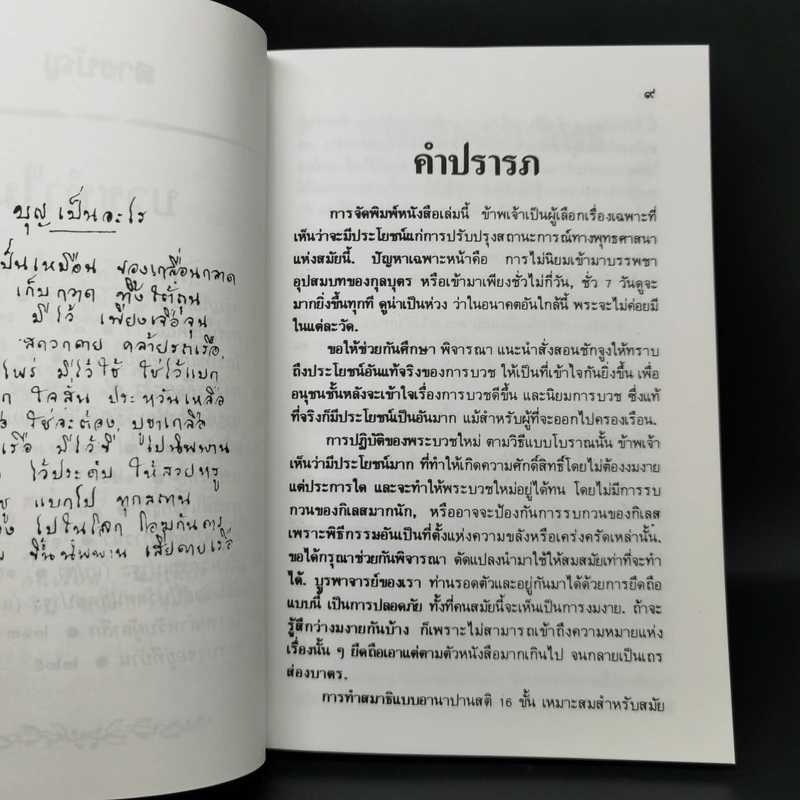 บุญ เป็น อะไร
เป็นเหมือน ของเกลื่อนกลาด
เก็บ กวาด ทิ้ง ใต้ถุน
มีไว้ เพียงเจือจุน
สะดวกดาย คล้ายรถเรือ
มีไว้ใช้ ใช่ไว้แบก
ใจสั่น ประหวั่นเหลือ
ใช่จะต้อง บูชาเกลือ
เรือ มีไว้ขี่ ไปนิพพาน
ไว้ประดับ ให้สวยหรู
แบกไป ทุกสถาน
ไปในโลก โอฆกันดาร
ขึ้นนิพพาน เสียดายเรือ
๙
คำปรารภ
การจัดพิมพ์หนังสือเล่มนี้ ข้าพเจ้าเป็นผู้เลือกเรื่องเฉพาะที่
เห็นว่าจะมีประโยชน์แก่การปรับปรุงสถานะการณ์ทางพุทธศาสนา
แห่งสมัยนี้. ปัญหาเฉพาะหน้าคือ การไม่นิยมเข้ามาบรรพชา
อุปสมบทของกุลบุตร หรือเข้ามาเพียงชั่วไม่กี่วัน, ชั่ว 7 วันดูจะ
มากยิ่งขึ้นทุกที ดูน่าเป็นห่วง ว่าในอนาคตอันใกล้นี้ พระจะไม่ค่อยมี
ในแต่ละวัด.
ขอให้ช่วยกันศึกษา พิจารณา แนะนำสั่งสอนชักจูงให้ทราบ
ถึงประโยชน์อันแท้จริงของการบวช ให้เป็นที่เข้าใจกันยิ่งขึ้น เพื่อ
อนุชนชั้นหลังจะเข้าใจเรื่องการบวชดีขึ้น และนิยมการบวช ซึ่งแท้
ที่จริงก็มีประโยชน์เป็นอันมาก แม้สำหรับผู้ที่จะออกไปครองเรือน.
การปฏิบัติของพระบวชใหม่ ตามวิธีแบบโบราณนั้น ข้าพเจ้า
เห็นว่ามีประโยชน์มาก ที่ทำให้เกิดความศักดิ์สิทธิ์โดยไม่ต้องงมงาย
แต่ประการใด และจะทำให้พระบวชใหม่อยู่ได้ทน โดยไม่มีการรบ
กวนของกิเลสมากนัก, หรืออาจจะป้องกันการรบกวนของกิเลส
เพราะพิธีกรรมอันเป็นที่ตั้งแห่งความขลังหรือเคร่งครัดเหล่านั้น.
ขอได้กรุณาช่วยกันพิจารณา ดัดแปลงนำมาใช้ให้สมสมัยเท่าที่จะทำ
ได้. บูรพาจารย์ของเรา ท่านรอดตัวและอยู่กันมาได้ด้วยการยึดถือ
แบบนี้ เป็นการปลอดภัย ทั้งที่คนสมัยนี้จะเห็นเป็นการงมงาย. ถ้าจะ
รู้สึกว่างมงายกันบ้าง ก็เพราะไม่สามารถเข้าถึงความหมายแห่ง
เรื่องนั้น ๆ ยึดถือเอาแต่ตามตัวหนังสือมากเกินไป จนกลายเป็นเถร
ส่องบาตร.
การทำสมาธิแบบอานาปานสติ 16 ขั้น เหมาะสมสำหรับสมัย